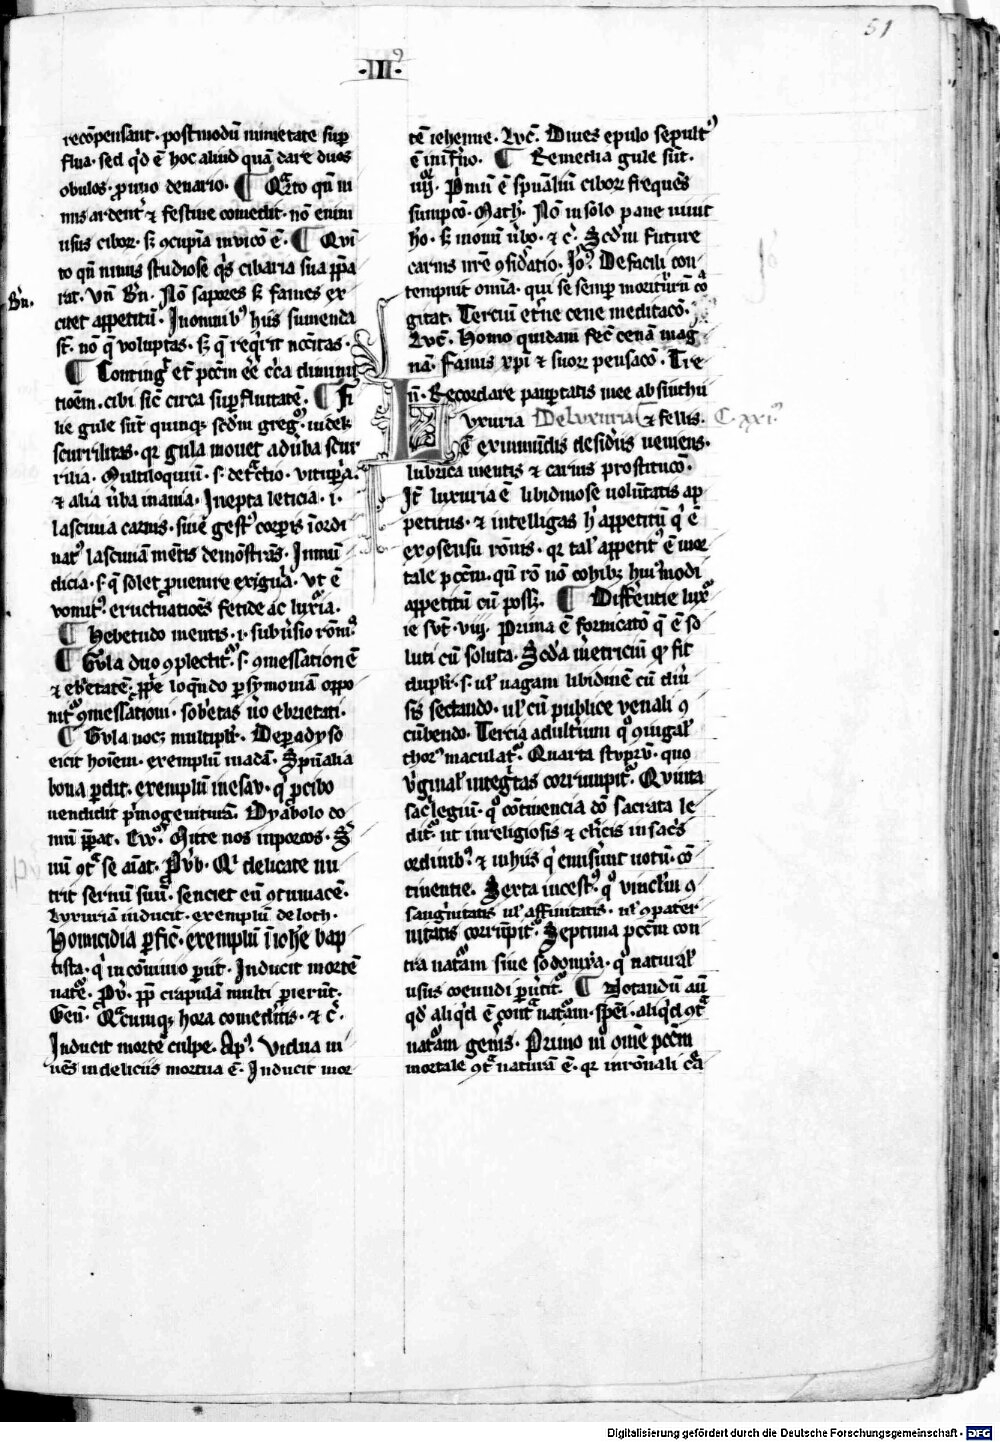 51
·III·
recōpensant· postmodū nimietate suꝑ
flua· sed qd ē hoc aliud quā dare duos
obulos· ꝓ uno denario· ¶ Qrto qn̄ ni
mis ardent᷑ ⁊ festine comedit· nō enim
usus cibor· sꝫ ꝯcupīa in vico ē· ¶ Qui
to qn̄ nimis studiose qs cibaria sua p̄ꝑa
Bn̄·
rat· vn̄ Bn̄· Nō sapores sꝫ fames ex
citet appetitū· In omnibꝰ hiis sumenda
st̄· nō q̄ voluptas· sꝫ q̄ reqrit nccītas·
¶ Conting᷑ et̄ pcc̄m eē cc̄a diminu
tioēm· cibi sic̄ circa suꝑfluitatē· ¶ Fi
lie gule sūt quinqꝫ scd̄m gregꝰ· indeł
scurrilitas· qr gula mouet ad v̄ba scur
rilia· Multiloquiū· s· detctio· vituꝑa·
⁊ alia v̄ba inania· Inepta leticia· i·
lasciuia carnis· siue gestꝰ corꝑis īordi
natꝰ lasciuiam mētis demōstrās· Inmū
dicia· s· q̄ solet ꝓuenire ex igluuia· vt ē
vomitꝰ· eructuatiōes fetide ac luxīa·
¶ Hebetudo mentis· i· subūsio rōnīs
¶ Gvla duo ꝯplectit᷑· s· ꝯmessationē
⁊ ebetatē· ꝓpe loqndo ꝑ symoniam oppo
nit᷑ ꝯmessationi· sobetas ūo ebrietati·
¶ Gvla nocꝫ multiplr· De ꝑadyso
eicit hoīem· exemplū in adā· Spūalia
bona ꝑdit· exemplū in esav· q ꝓ cibo
vendidit pmogenituram· Dyabolo do
mū p̄ꝑat· Lucꝰ· Mitte nos in porcos· S
nū ꝯt se aīat· Prvb· Qi delicate nu
trit seruū suū· senciet eū ꝯtumacē·
Luxuriā inducit· exemplū de loth·
Homicidia ꝑfic̄· exemplū ī iohē bap
tista· q in cōuiuio ꝑiit· Inducit mortē
nature· Pv̄· ꝓp̄ crapulā multi ꝑierūt·
Gen̄· Qcumqꝫ hora comedītis· ⁊ c̄·
Inducit mortē culpe· Apꝰ· Vidua vi
uēs in deliciis mortua ē· Inducit mor
tē iehenne· Lvc̄· Diues epulo sepultꝰ
ē in inf̄no· ¶ Remedia gule sūt·
iiij· Pmū ē spūaliū cibor frequēs
sumpcō· Math· Nō in solo pane viuit
ho· sꝫ in omni v̄bo· ⁊ c̄· Scd̄m future
carnis mr̄e ꝯsidatio· Joꝰ De facili con
tempnit omīa· qui se semꝑ moriturū co
gitat· Terciū et̄ne cene meditacō·
Lvc̄· Homo quidam fec̄ cenā mag
nā· Famis xp̄i ⁊ suor pensacō· Tre
n̄· Recordare pauꝑtatis mee absinthii
⁊ fellis·
De luxuria C· xxiꝰ
Lvxuria
ē ex inmūdis desid'iis veniens·
lubrica mentis ⁊ carnis prostitucō·
It̄ luxuria ē libidinose volūtatis ap
petitus· ⁊ intelligas h appetitū q ē
ex ꝯsensu rōnis· qr tal appetitꝰ ē mor
tale pcc̄m· qn̄ rō nō cohibꝫ huiꝰmodi
appetitū cū possꝫ· ¶ Diffēntie luxᵘ
ie svt̄· viij· Prima ē fornicatō q ē so
luti cū soluta· Scd̄a meretriciū qꝰ fit
duplr· s· uł vagam libidinē cū diū
sis sectando· uł cū publice venali ꝯ
cūbendo· Tercia adultium qꝰ ꝯiugał
thorꝰ maculat᷑· Quarta stvprv̄· quo
v̄ginał integtas corrumpit᷑· Qvinta
saclegiū· qꝰ cōtinencia do sacrata le
dit᷑ ut in religiosis ⁊ clicis in sacs
ordinibꝰ ⁊ in hiis q emisūnt votū cō
tinentie· Sexta incestꝰ· qꝰ vinclm ꝯ
sanguitatis uł affinitatis· uł ꝯpater
nitatis corrūpit᷑· Septima pcc̄m con
tra naturam siue sodomia· qꝰ naturał
usus coeundi ꝑūtit᷑· ¶ Notandū aū
qd aliqd ē cont naturam· spēi· aliqd ꝯt
naturam genis· Primo mō omē pcc̄m
mortale ꝯt naturā ē· qr in rōnali ca
Digitalisierung gefördert durch die Deutsche Forschungsgemeinschaft - DFG